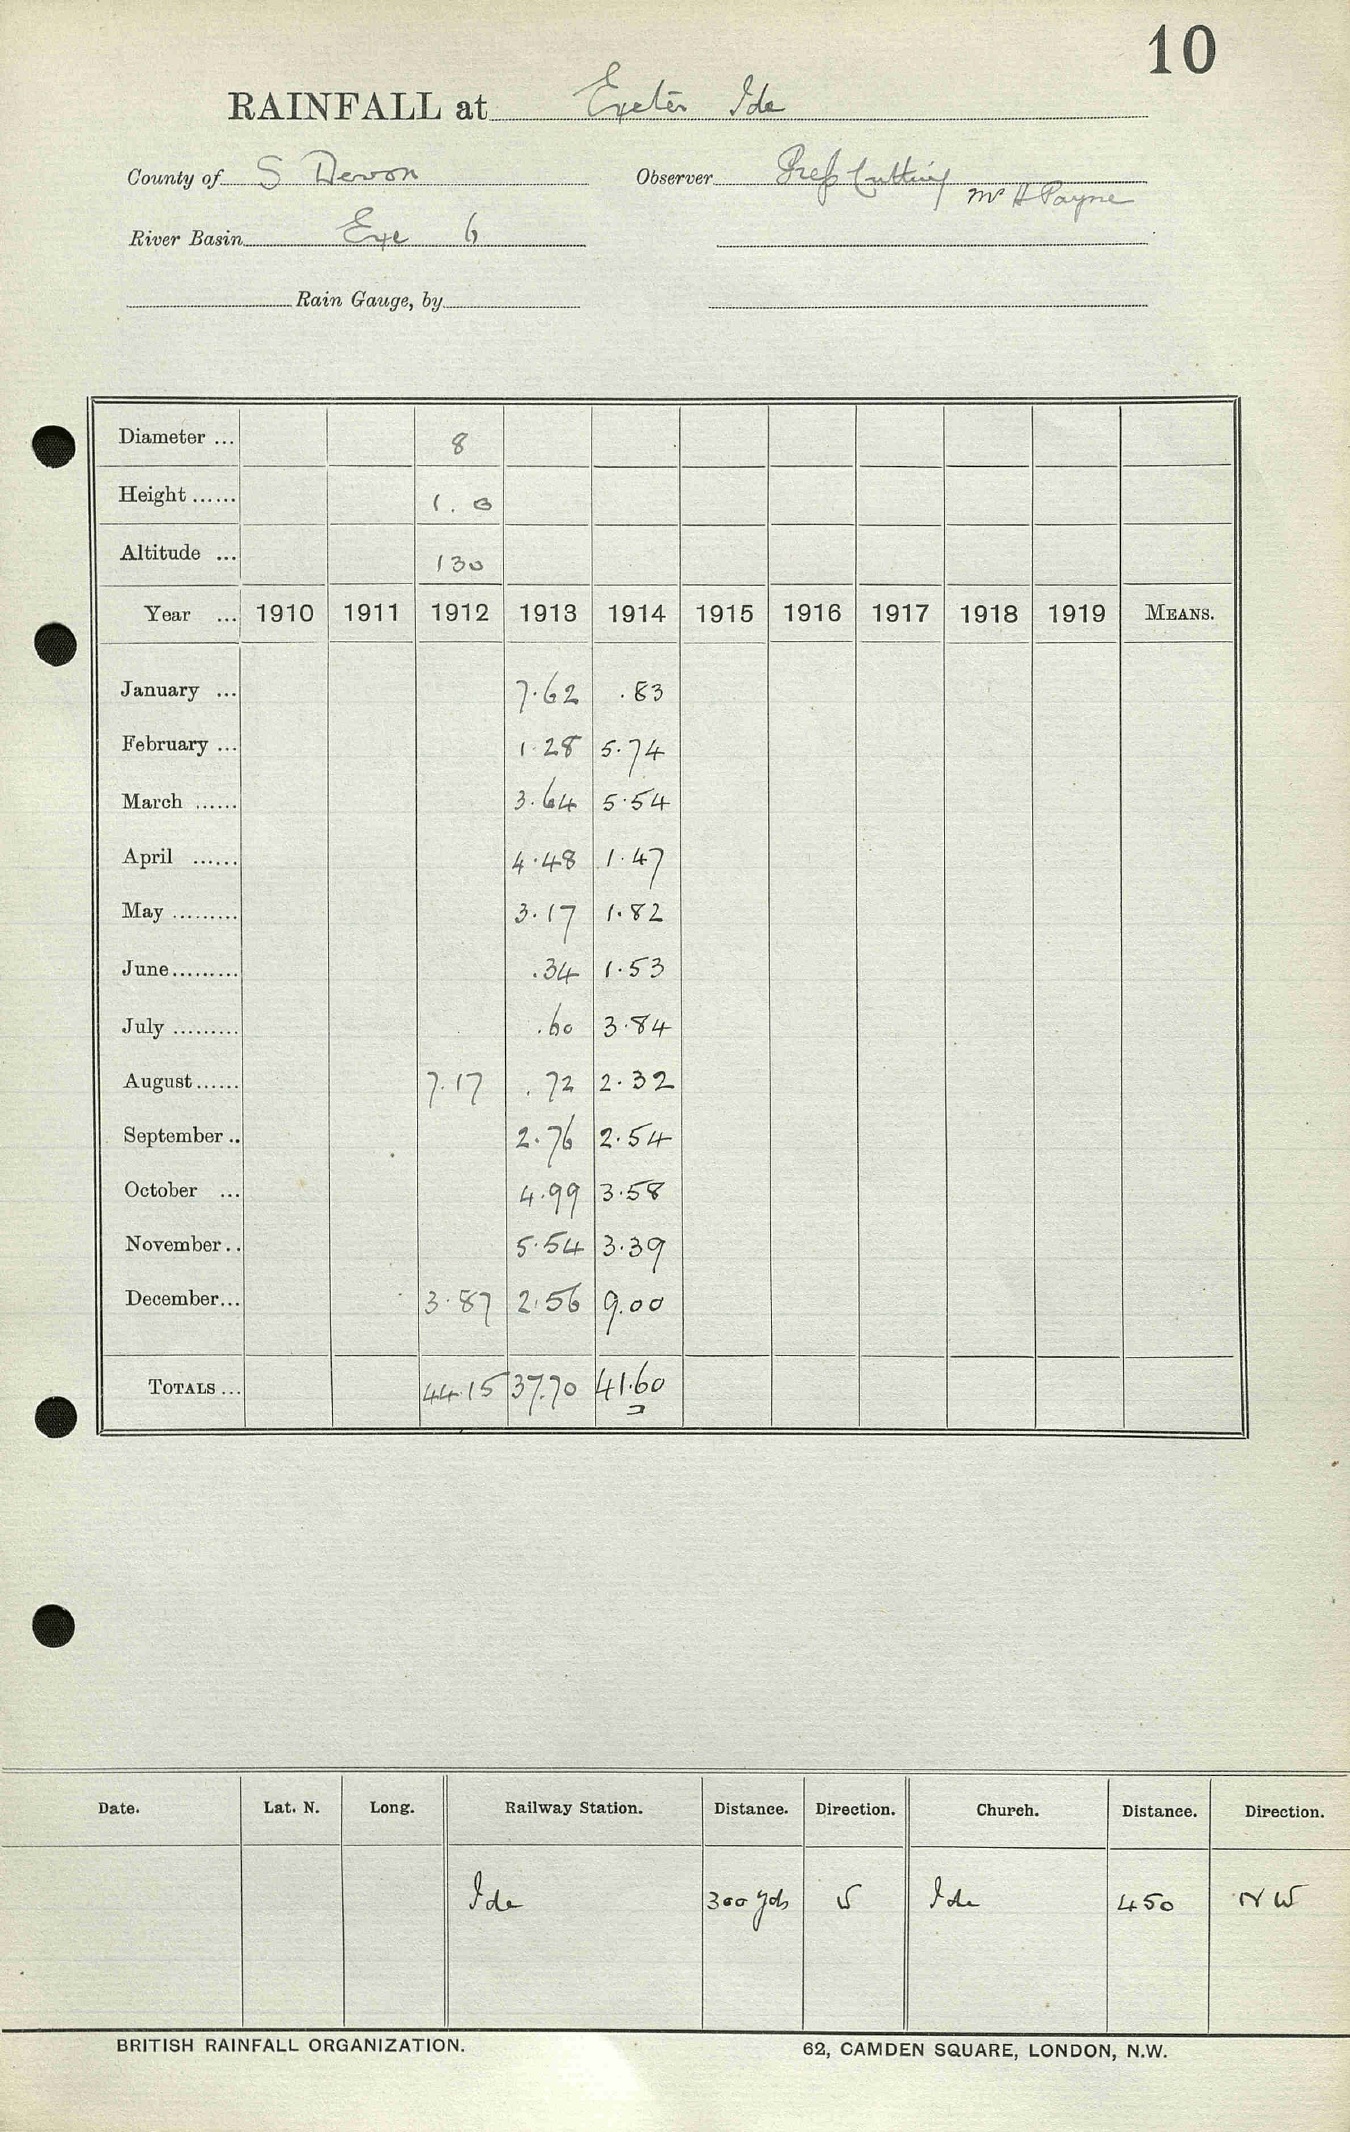 10
RAINFALL at Exeter Ide
County of S Devon Observer Press Cutting
Mr H Payne
River Basin Exe 6
Rain Gauge, by
Diameter ... 8
Height ...... 1.0
Altitude ... 130
Year ... 1910 1911 1912 1913 1914 1915 1916 1917 1918 1919 MEANS.
January ... 7.62 .83
February ... 1.28 5.74
March ...... 3.64 5.54
April ...... 4.48 1.47
May ......... 3.17 1.82
June......... .34 1.53
July ......... .60 3.84
August...... 7.17 .72 2.32
September .. 2.76 2.54
October ... 4.99 3.58
November.. 5.54 3.39
December... 3.87 2.56 9.00
TOTALS ... 44.15 37.70 41.60
Date. Lat. N. Long. Railway Station. Distance. Direction. Church. Distance. Direction.
Ide 300 yds Ide 450 NW
BRITISH RAINFALL ORGANIZATION. 62, CAMDEN SQUARE, LONDON, N.W.